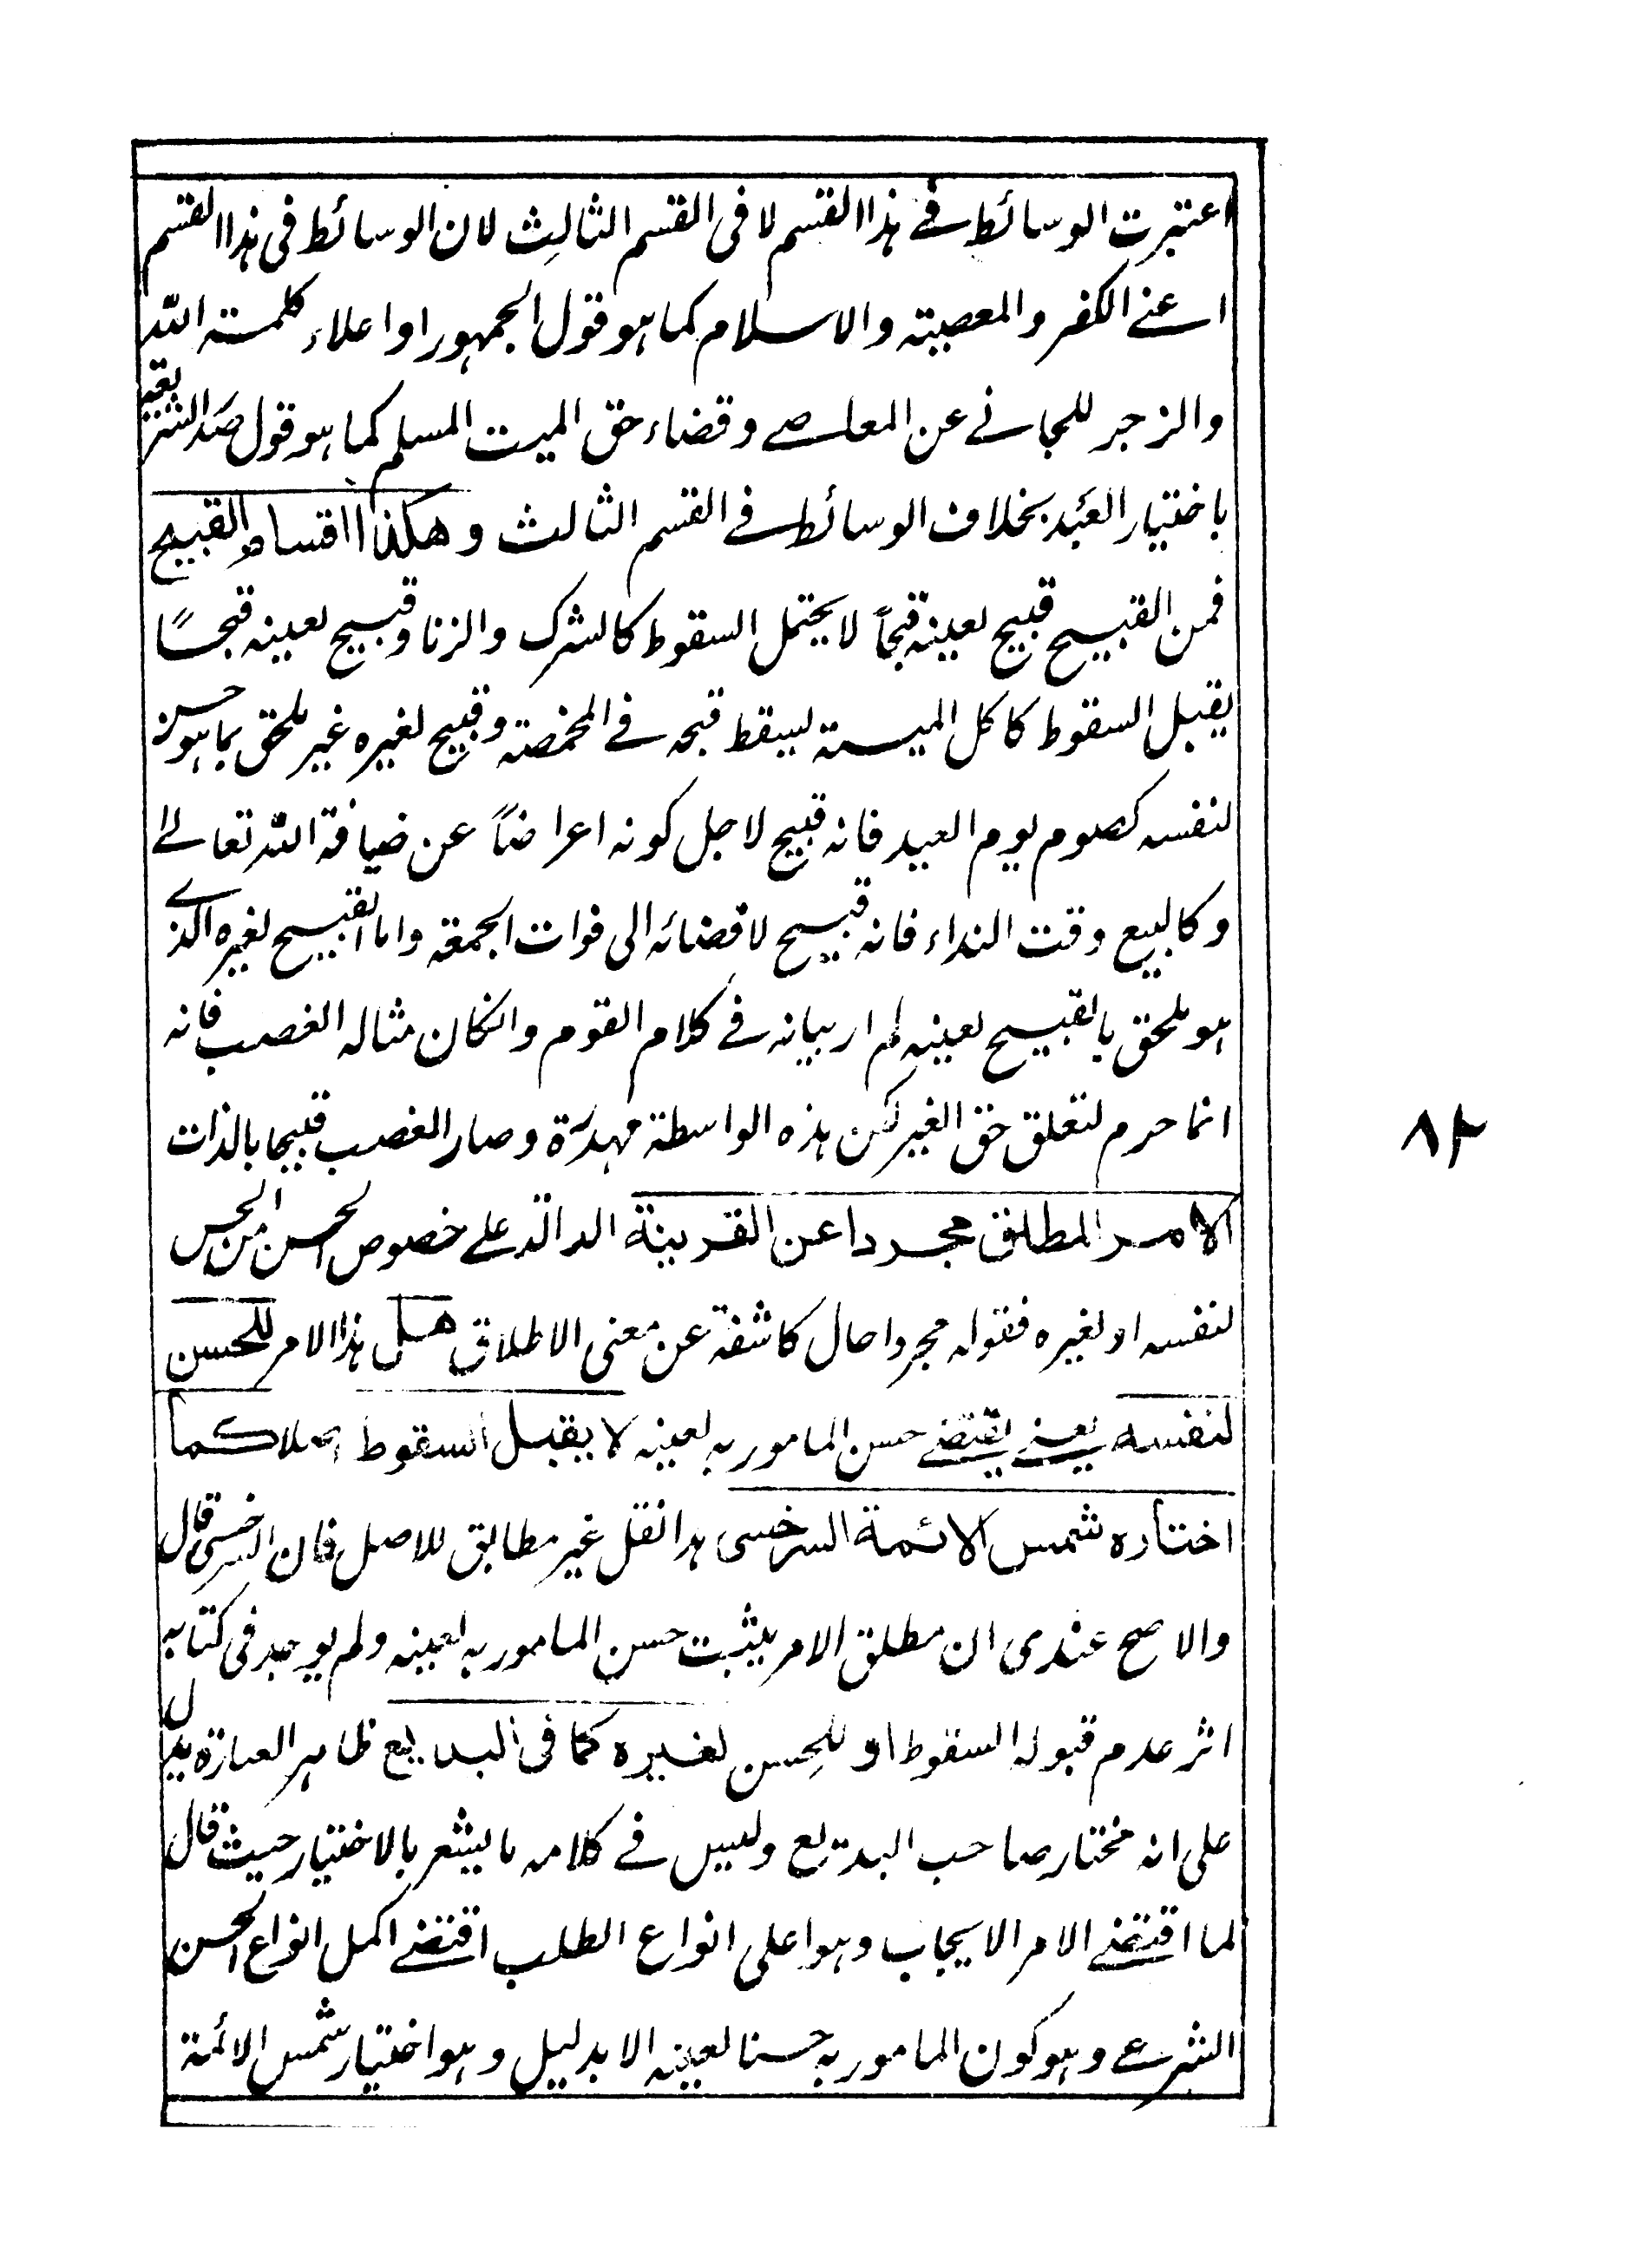 اعتبرت الوسائط فی هذا القسم لا فی القسم الثالث لان الوسائط فی هذا القسم
اعنی الکفر والمعصیة والاسلام کما هو قول الجمهور او اعلاء کلمة الله
والزجر للجانی عن المعاصی وقضاء حق المیت المسلم کما هو قول صدر الشریعة
باختیار العبد بخلاف الوسائط فی القسم الثالث وهکذا اقسام القبیح
فمن القبیح قبیح لعینه قبحاً لا یحتمل السقوط کالشرک والزنا وقبیح لعینه قبحاً
یقبل السقوط کاکل المیتة یسقط قبحه فی المخمصة وقبیح لغیره غیر ملحق بما هو حسن
لنفسه کصوم یوم العید فانه قبیح لاجل کونه اعراضاً عن ضیافة الله تعالی
وکالبیع وقت النداء فانه قبیح لافضائه الی فوات الجمعة واما القبیح لغیره الذی
هو ملحق بالقبیح لعینه لم ار بیانه فی کلام القوم وانکان مثاله الغصب فانه
انما حرم لتعلق حق الغیر لکن هذه الواسطة مهدرة وصار الغصب قبیحا بالذات
الامر المطلق مجردا عن القرینة الدالة علی خصوص الحسن من الحسن
لنفسه او لغیره فقوله مجردا حال کاشفة عن معنی الاطلاق هل هذا الامر للحسن
لنفسه یعنی یقتضی حسن المامور به لعینه لا یقبل السقوط اصلا کما
اختاره شمس الائمة السرخسی هذا نقل غیر مطابق للاصل فان السرخسی قال
والاصح عندی ان مطلق الامر یثبت حسن المامور به لعینه ولم یوجد فی کتابه
اثر عدم قبوله السقوط او للحسن لغیره کما فی البدیع ظاهر العبارة یدل
علی انه مختار صاحب البدیع ولیس فی کلامه ما یشعر بالاختیار حیث قال
لما اقتضی الامر الایجاب وهو اعلی انواع الطلب اقتضی اکمل انواع الحسن
الشرعی وهو کون المامور به حسنا لعینه الا بدلیل وهو اختیار شمس الائمة